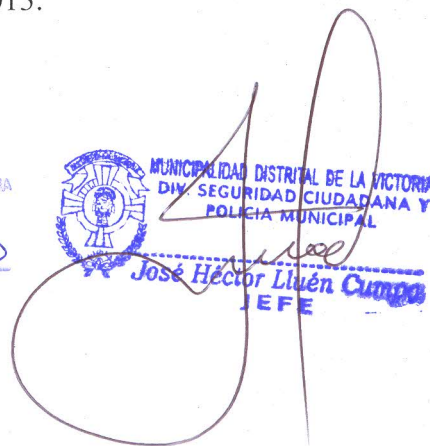 MUNICIPALIDAD DISTRITAL DE LA VICTORIA
DIV. SEGURIDAD CIUDADANA Y
POLICIA MUNICIPAL
José Héctor Lluén Cumpa
JEFE